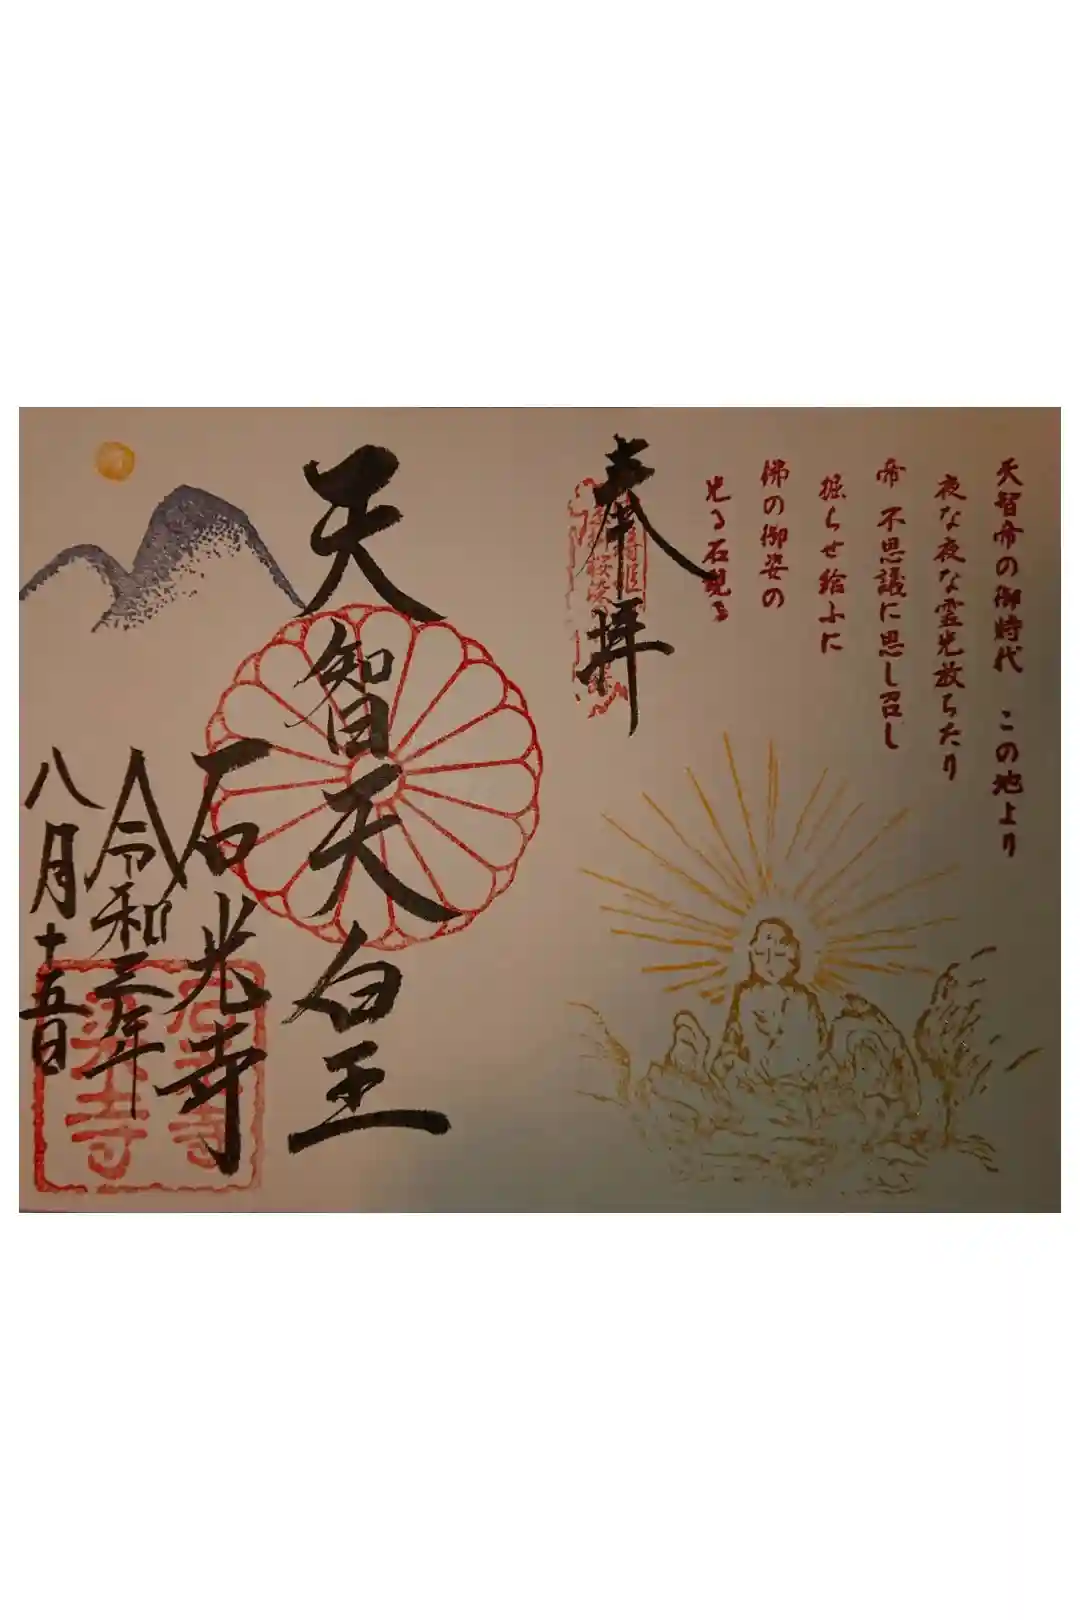 天智帝の御時代　この池より
夜な夜な霊光放ちたり
帝 不思議に思し召し
掘らせ給ふに
佛の御姿の
光る石現る
奉拝
天智天皇
石光寺
令和三年
八月十五日